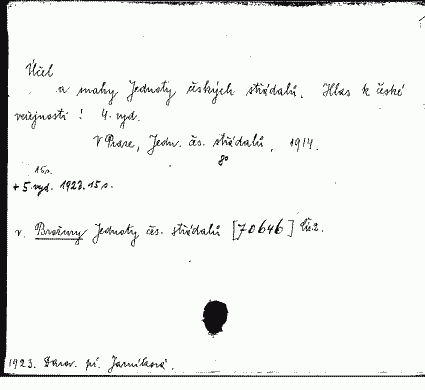 Účel
a snahy Jednoty českých střádalů. Hlas k české
veřejnosti! 4. vyd.
V Praze, Jedn. čes. střádalů, 1914.
8°
15 s.
+ 5. vyd. 1923. 15 s.
v. Brožury Jednoty čes. střádalů [70646] Čís. 2.
1923. Darov. pí. Jarníková.